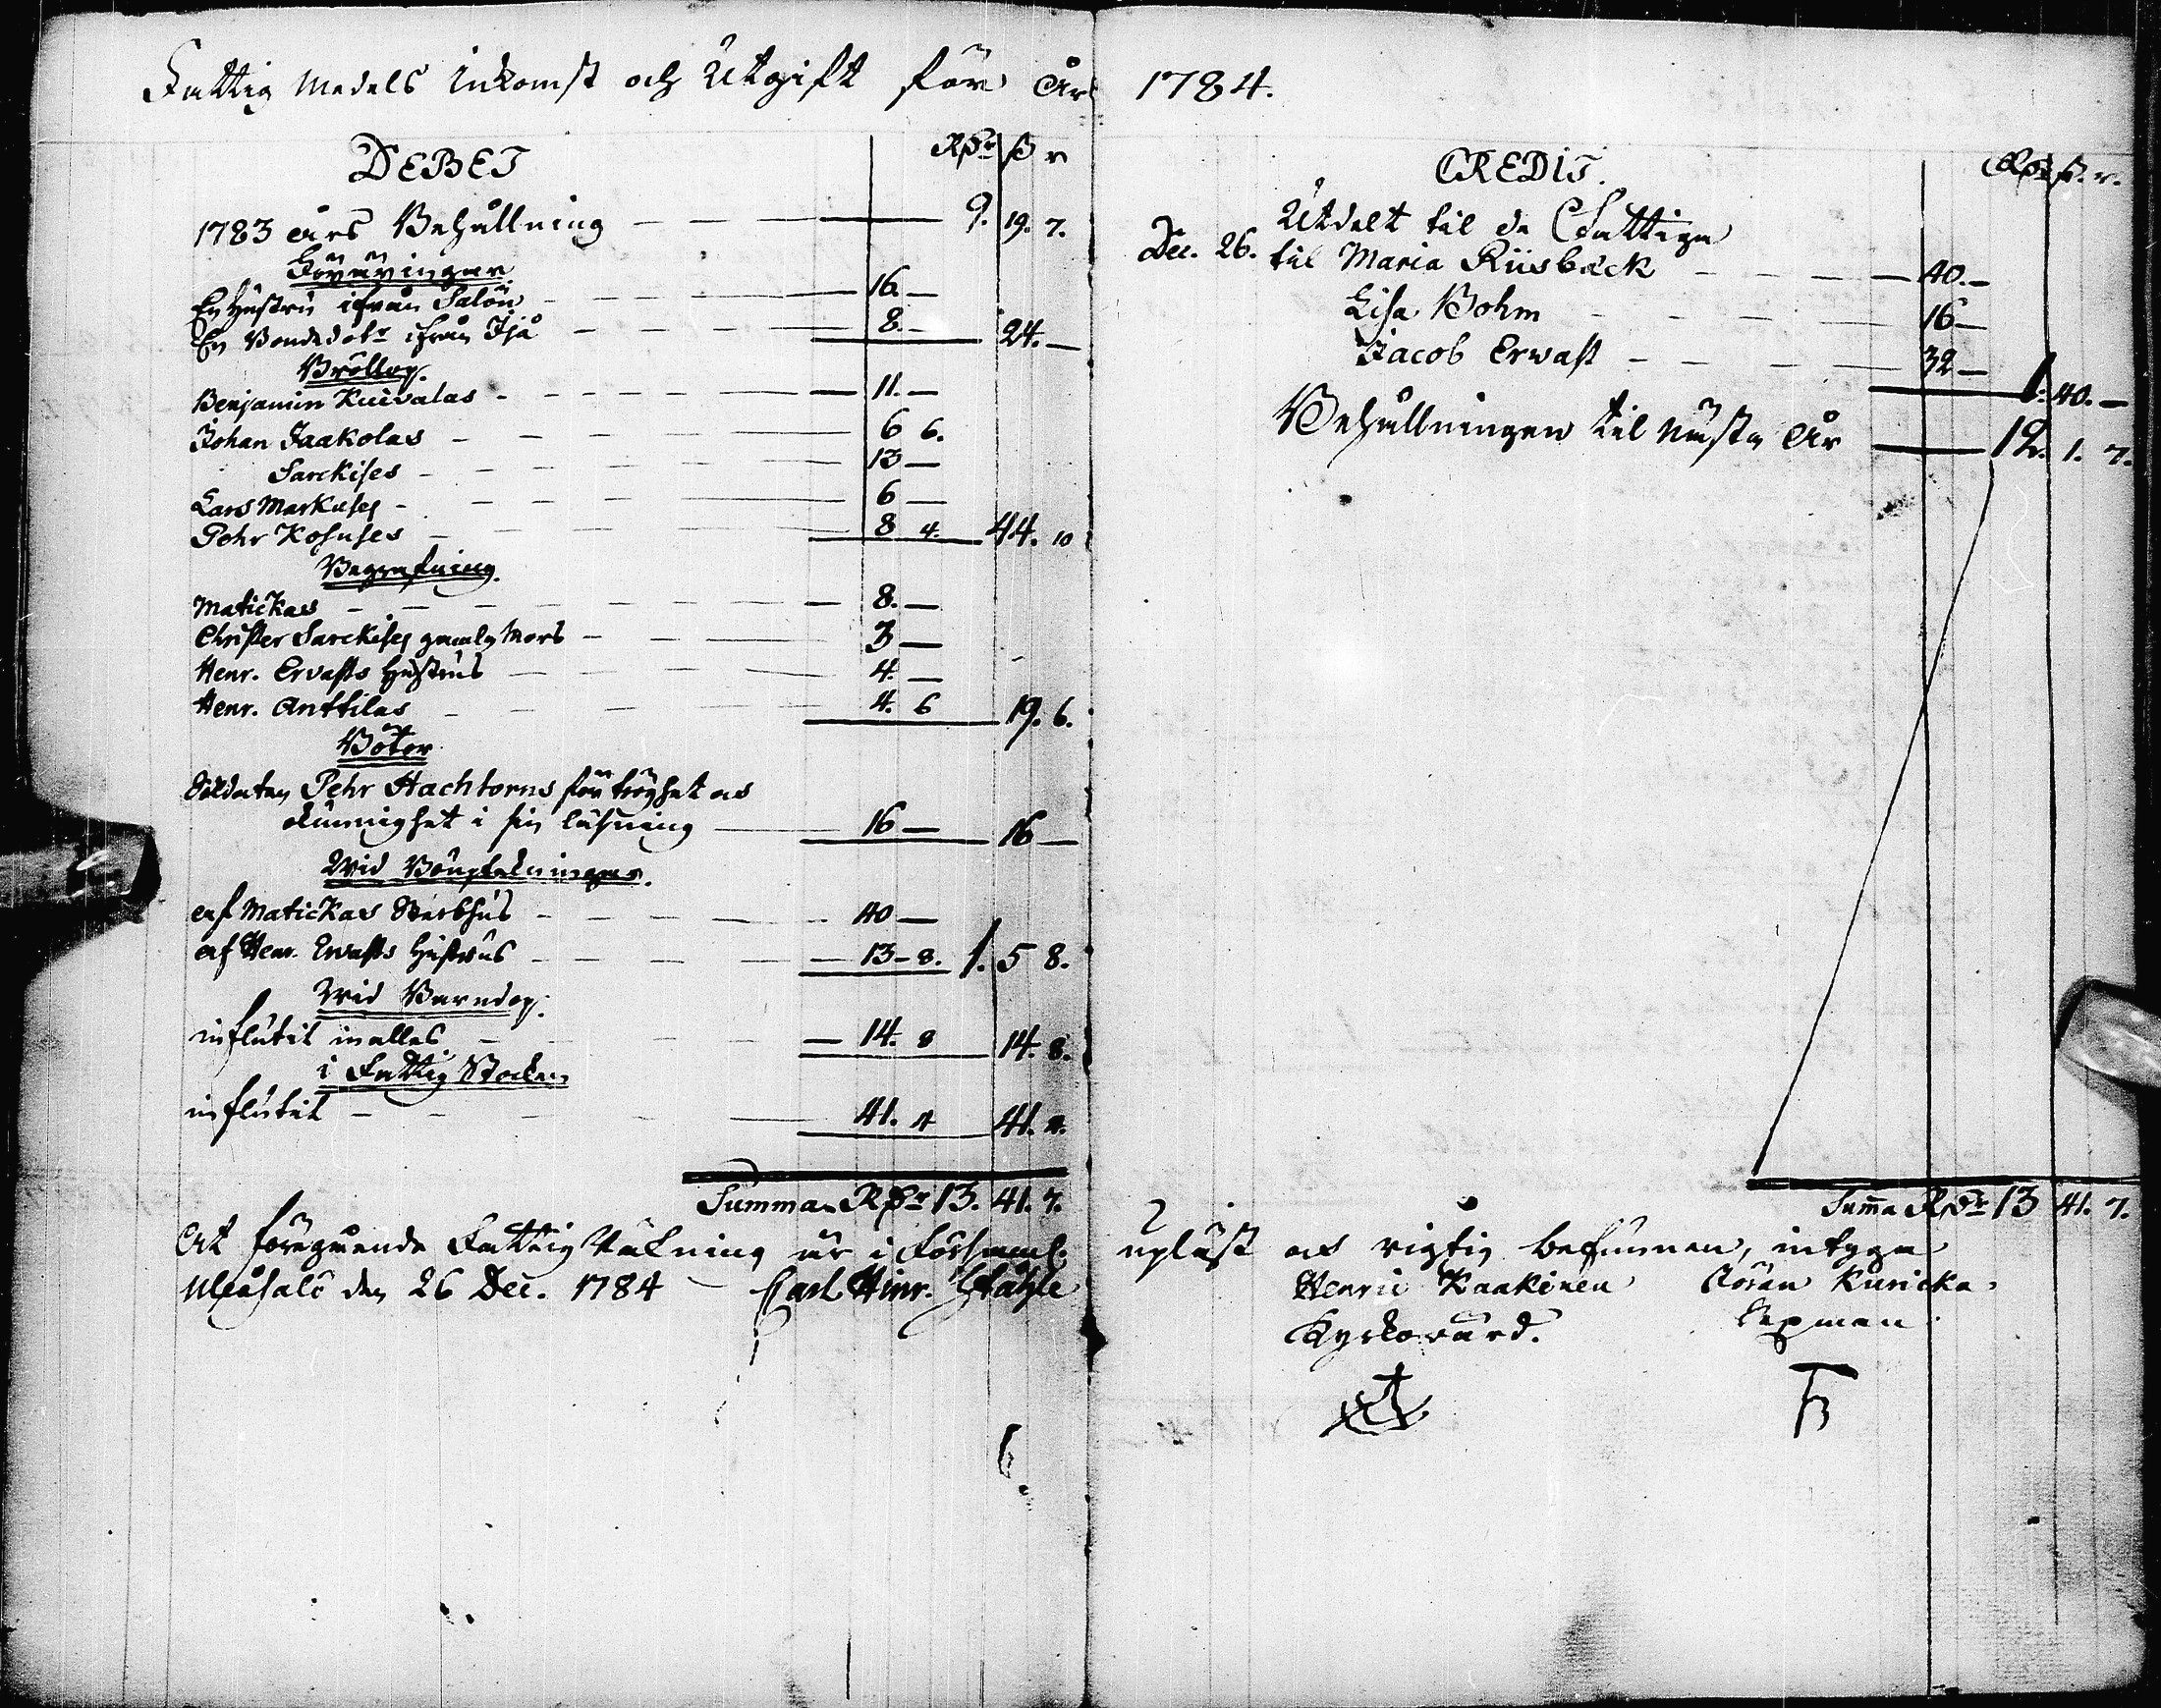 Fattig Medels Inkomst och Utgift för År 1784.
DEBET Rdr ß r
1783 års Behållning 9. 19. 7.
Föräringar
En Hustru ifrån Salön 16. —
En Bondedotr ifrån Ijå 8. — 24. —
Bröllop.
Benjamin Kuivalas 11. —
Johan Jaakolas 6 6.
Sarckises 13 —
Lars Markuses 6 —
Pehr Kosuses 8 4. 44. 10
Begrafning
Matickas 8. —
Christer Sarckises gamla Mors 3 —
Henr. Ervasts Hustrus 4. —
Henr. Anttilas 4. 6 19. 6.
Böter
Soldaten Pehr Hachtorns för tröghet och
okunnighet i sin läsning 16 — 16 —
Wid Bouptekningar.
af Matickas Sterbhus 40 —
af Henr. Ervasts Hustrus 13 - 8. 1. 5 8.
Wid Barndop.
influtit in alles 14. 8 14. 8.
i Fattig Stocken
influtit 41. 4 41. 4.
Summa Rdr 13. 41. 7.
At föregående Fattig Räkning är i Församl.
Uleåsalo den 26 Dec. 1784 Carl Hinr. Ståhle
CREDIT. Rdr ß. r.
Utdelt til de Fattiga
Dec. 26. til Maria Riisbäck 40. —
Lisa Bohm 16 —
Jacob Erwast 32 —
1. 40. —
Behållningen til nästa År 12. 1. 7.
Summa Rdr 13 41. 7.
upläst och rigtig befunnen, intyga
Henric Kaakinen Göran Kuricka
Kyrkovärd. Sexman